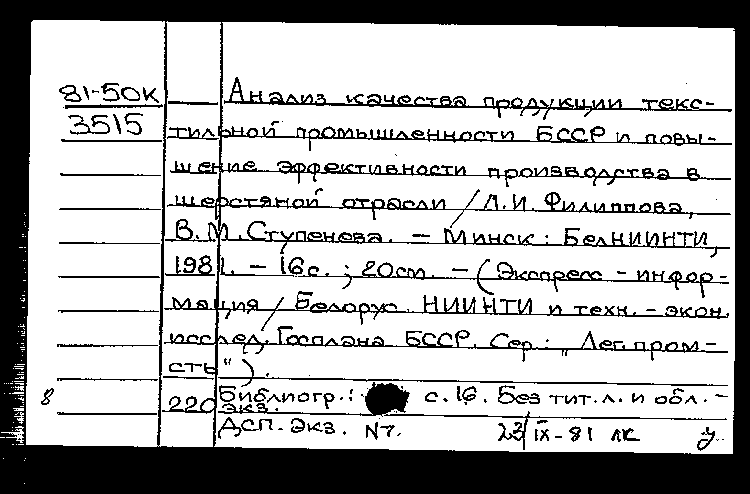 81-50К Анализ качества продукции текс-
3515
тильной промышленности БССР и повы-
шение эффективности производства в
шерстяной отрасли / Л.И. Филиппова,
В.М. Ступенева. – Минск : БелНИИНТИ,
1981. – 16с. ; 20см. – (Экспресс – инфор-
мация / Белорус. НИИНТИ и техн. – экон.
исслед. Госплана БССР. Сер.: „Лег. пром-
сть").
8 Библиогр.: с. 16. Без тит. л. и обл. –
220 экз.
ДСП. Экз. №7. 23/IX-81 лк у